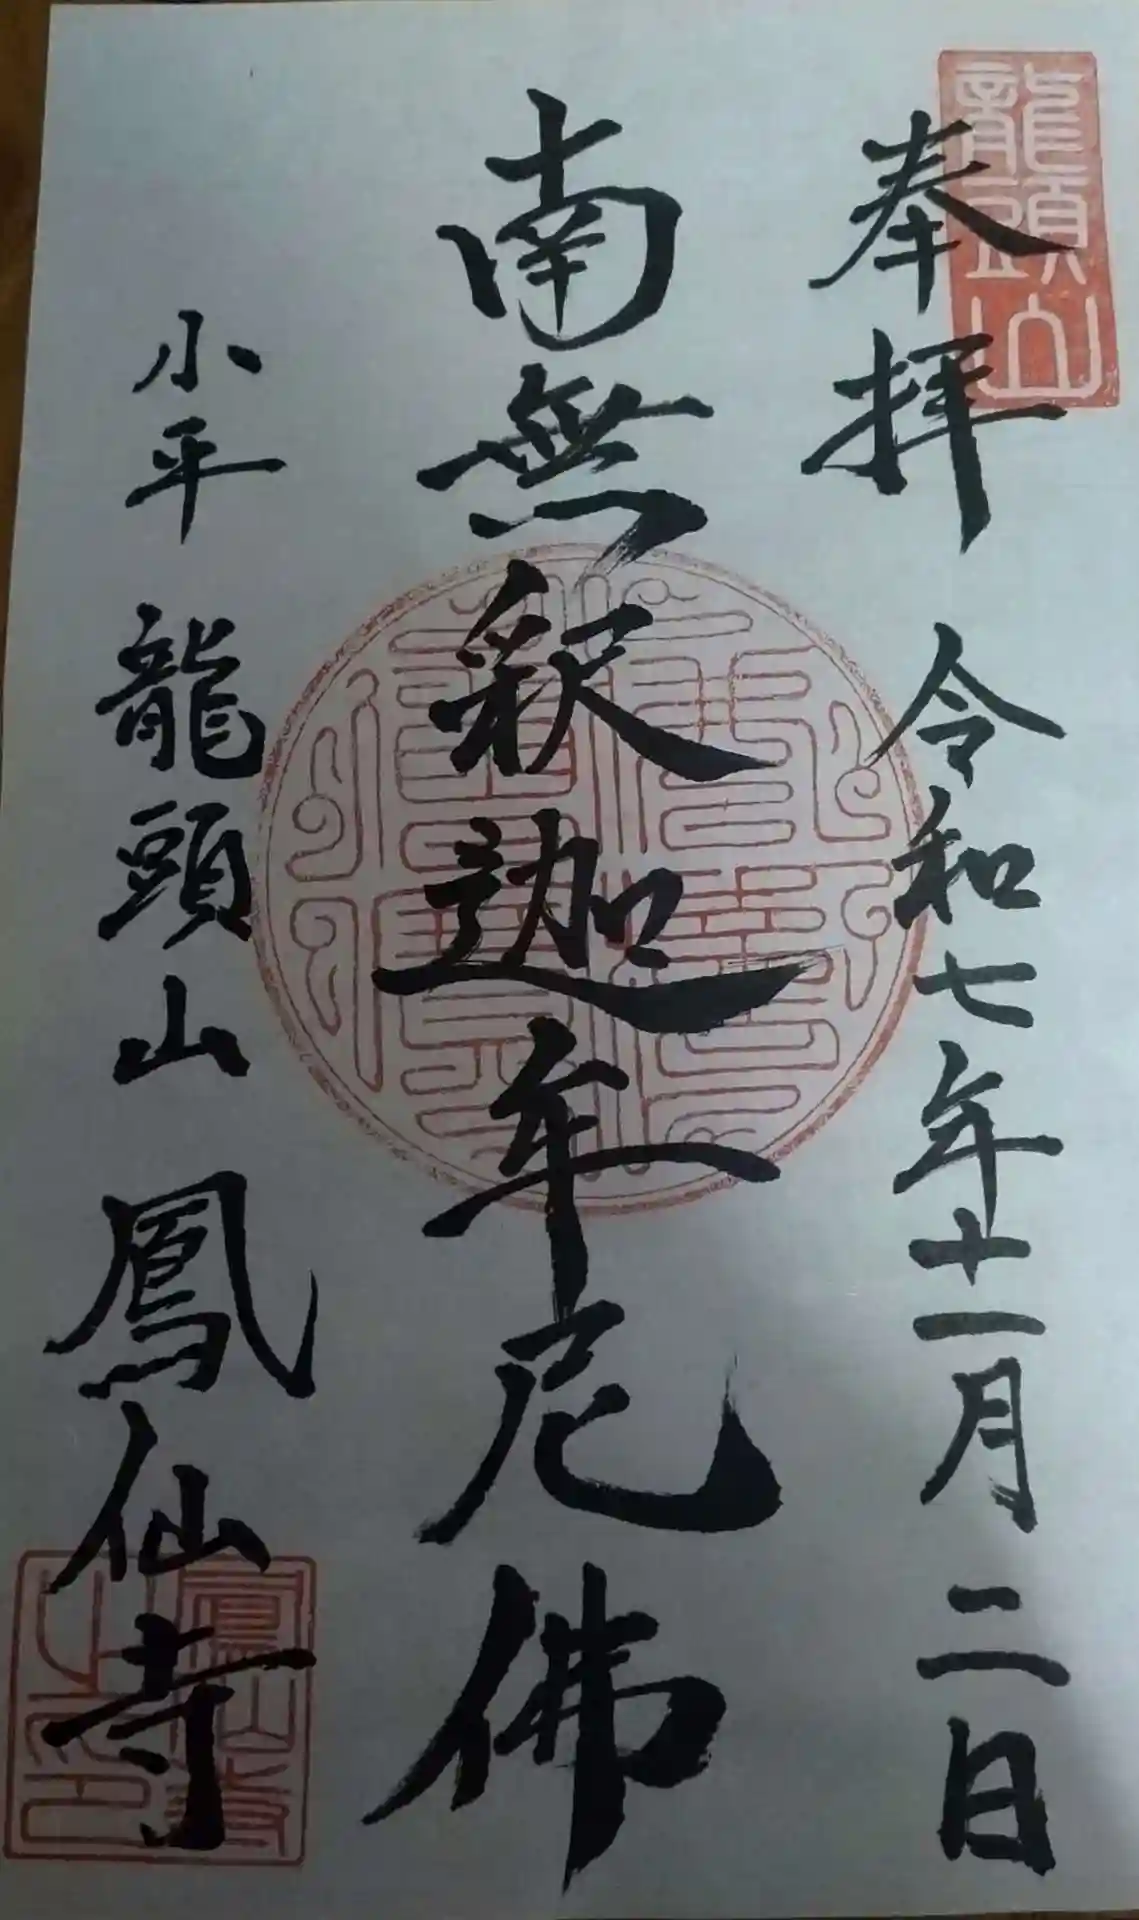 奉拝 令和七年十一月二日
南無釈迦牟尼佛
小平 龍頭山 鳳仙寺
龍頭山